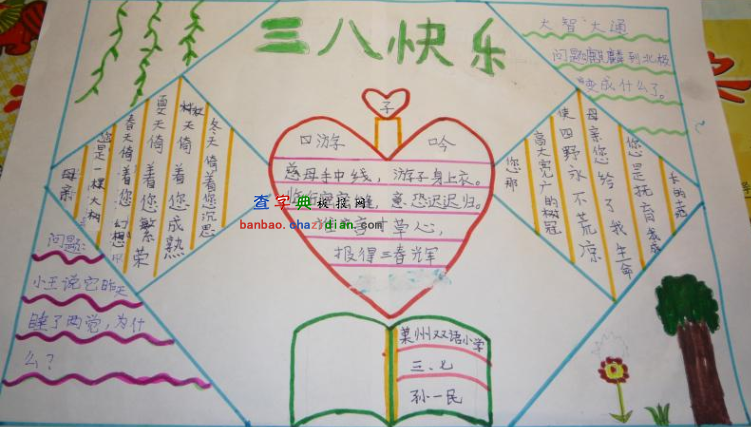 三八快乐
大智大通
问题：麒麟到北极
变成什么了。
子
日游 吟
慈母手中线，游子身上衣。
临行密密缝，意恐迟迟归。
谁言寸草心，
报得三春光军
查字典 板报网
banbao.chazidian.com
母亲
您是一棵大树
春天倚着您幻想
夏天倚着您繁荣
秋天倚着您成熟
冬天倚着您沉思
您那
高大宽广的树冠
使四野永不荒凉
母亲您给了我生命
您是抚育我成
长的土地
问题：
小王说它昨天
睡了两觉，为什
么？
莱州双语小学
三、七
孙一民